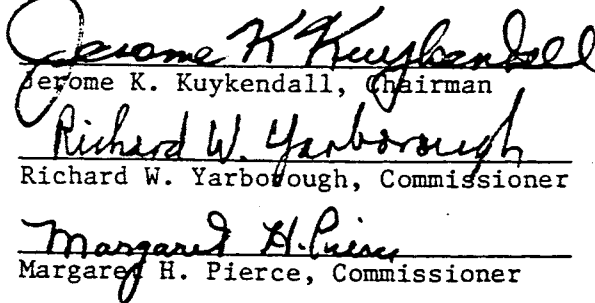 Jerome K Kuykendall
Jerome K. Kuykendall, Chairman
Richard W. Yarborough
Richard W. Yarborough, Commissioner
Margaret H. Pierce
Margaret H. Pierce, Commissioner